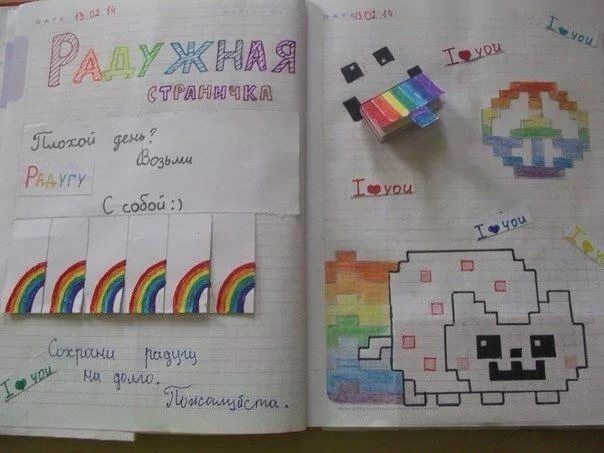 DATE 13.02.14
РАДУЖНАЯ
СТРАНИЧКА
Плохой день?
Возьми
РАДУГУ
С собой :)
Сохрани радугу
на долго.
Пожалуйста.
I ♥ you
DATE 13.02.14
I ♥ you
I ♥ you
I ♥ you
I ♥ you
I ♥ y